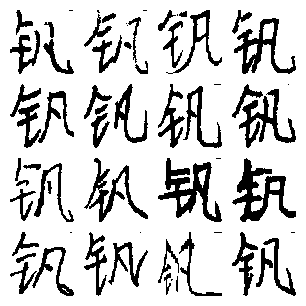 钒钒钒钒
钒钒钒钒
钒钒钒钒
钒钒钒钒